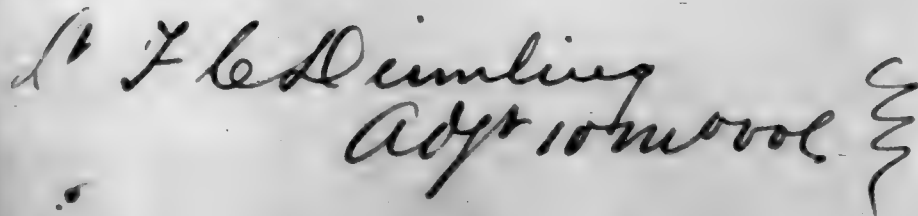 Lt F C Deimling
Adjt 10 Mo Vol